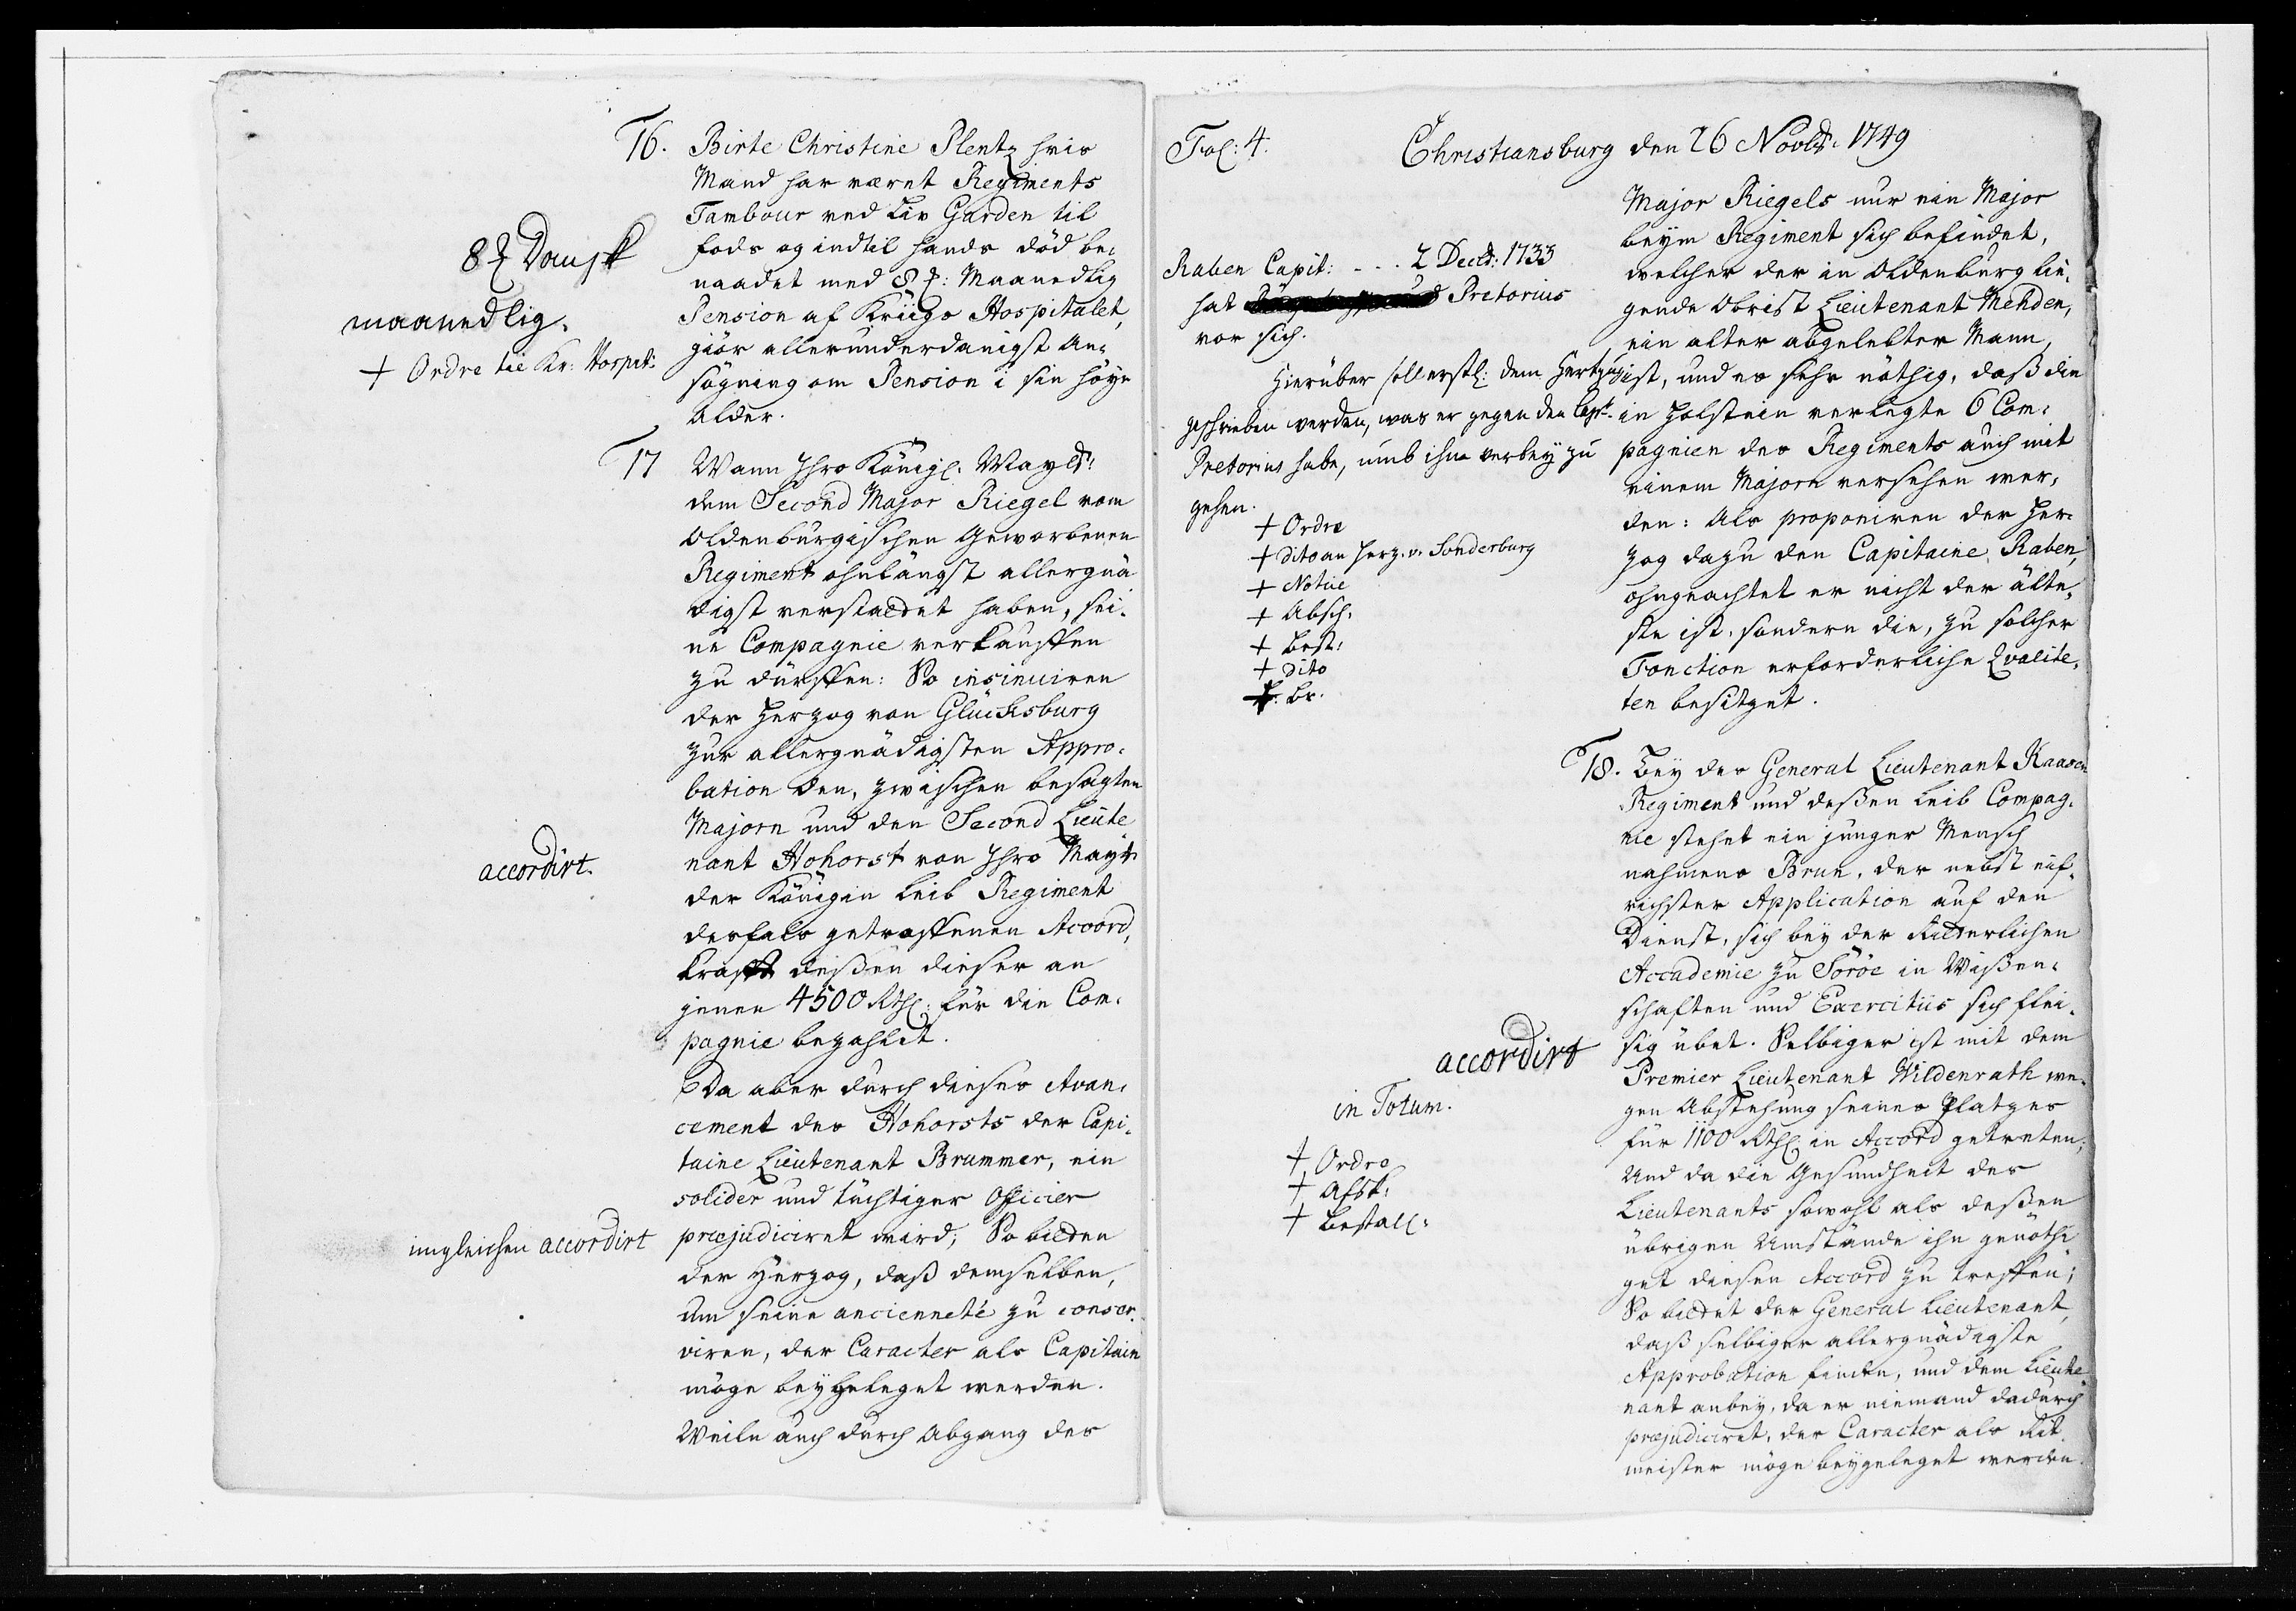 16. Birte Christine Plentz hvis
Mand har været Regiments
Tambour ved Liv Garden til
fods og indtil hands död be-
naadet med 8 ꝑ: Maanedlig
Pension af Kriigs Hospitalet,
giör allerunderdanigst An-
sögning om Pension i sin höye
Alder.
8 ꝑ Dansk
maanedlig.
+ Ordre til Kr: Hospit:
17 Wann Ihro Königl. Mayt:
dem Second Major Riegel vom
Oldenburgischen Geworbenen
Regiment ohnlängst allergnä
digst verstattet haben, sei-
ne Compagnie verkauffen
zu dürffen: So insinuiren
der Herzog von Glücksburg
zur allergnädigsten Appro-
bation den, zwischen besagten
Majorn und den Second Lieute
nant Hohorst von Ihro Mayt
der Königin Leib Regiment
desfals getroffenen Accord,
krafft deßen dieser an
jenen 4500 Rthl: für die Com-
pagnie bezahlet.
accordirt.
Da aber durch dieses Avan-
cement des Hohorsts der Capi-
taine Lieutenant Brummer, ein
solider und tüchtiger Officier
præjudiciret wird; So bitten
der Herzog, daß demselben,
um seine ancienneté zu conser-
viren, der Caracter als Capitain
möge beygeleget werden.
Weile auch durch Abgang des
imgleichen accordirt
Fol: 4. Christiansburg den 26 Novbr. 1749
Major Riegels nur ein Major
beym Regiment sich befindet,
welcher der in Oldenburg lie-
gende Obrist Lieutenant Mehden,
ein alter abgelebter Mann,
ist, und es sehr nöthig, daß die
in Holstein verlegte 6 Com-
pagnien des Regiments auch mit
einem Majorn versehen wer-
den: Als proponiren der Her-
zog dazu den Capitaine Raben,
ohngeachtet er nicht der älte-
ste ist, sondern die, zu solcher
Fonction erforderliche Qvalite-
ten besitzet.
Raben Capit: - - . 2 Decbr: 1733
hat Pretorius
vor sich.
Hierüber soll erstl: dem Hertzug
geschrieben werden, was er gegen den Capt.
Pretorius habe, umb ihne verbey zu
gehen.
+ Ordre
+ dito an Herz. v. Sonderburg
+ Notice
+ Absch:
+ Best:
+ dito
+ : Br.
18. Bey des General Lieutenant Kaasen
Regiment und deßen Leib Compag-
nie stehet ein junger Mensch
nahmens Brun, der nebst eif-
richster Application auf den
Dienst, sich bey der Ritterlichen
Accademie zu Söröe in Wißen-
schaften und Exercitiis sich flei-
sig übet. Selbiger ist mit dem
Premier Lieutenant Wildenrath we-
gen Abstehung seines Platzes
für 1100 Rthl in Accord getreten;
Und da die Gesundheit des
Lieutenants sowohl als deßen
übrigen Umstände ihn genöthi
get diesen Accord zu treffen;
So bittet der General Lieutenant,
daß selbiger allergnädigste
Approbation finden, und dem Lieute-
nant anbey, da er niemand dadurch
præjudiciret, der Caracter als Rit-
meister möge beygeleget werden.
accordirt
in Totum.
+ Ordre
+ Afsk:
+ Bestall: